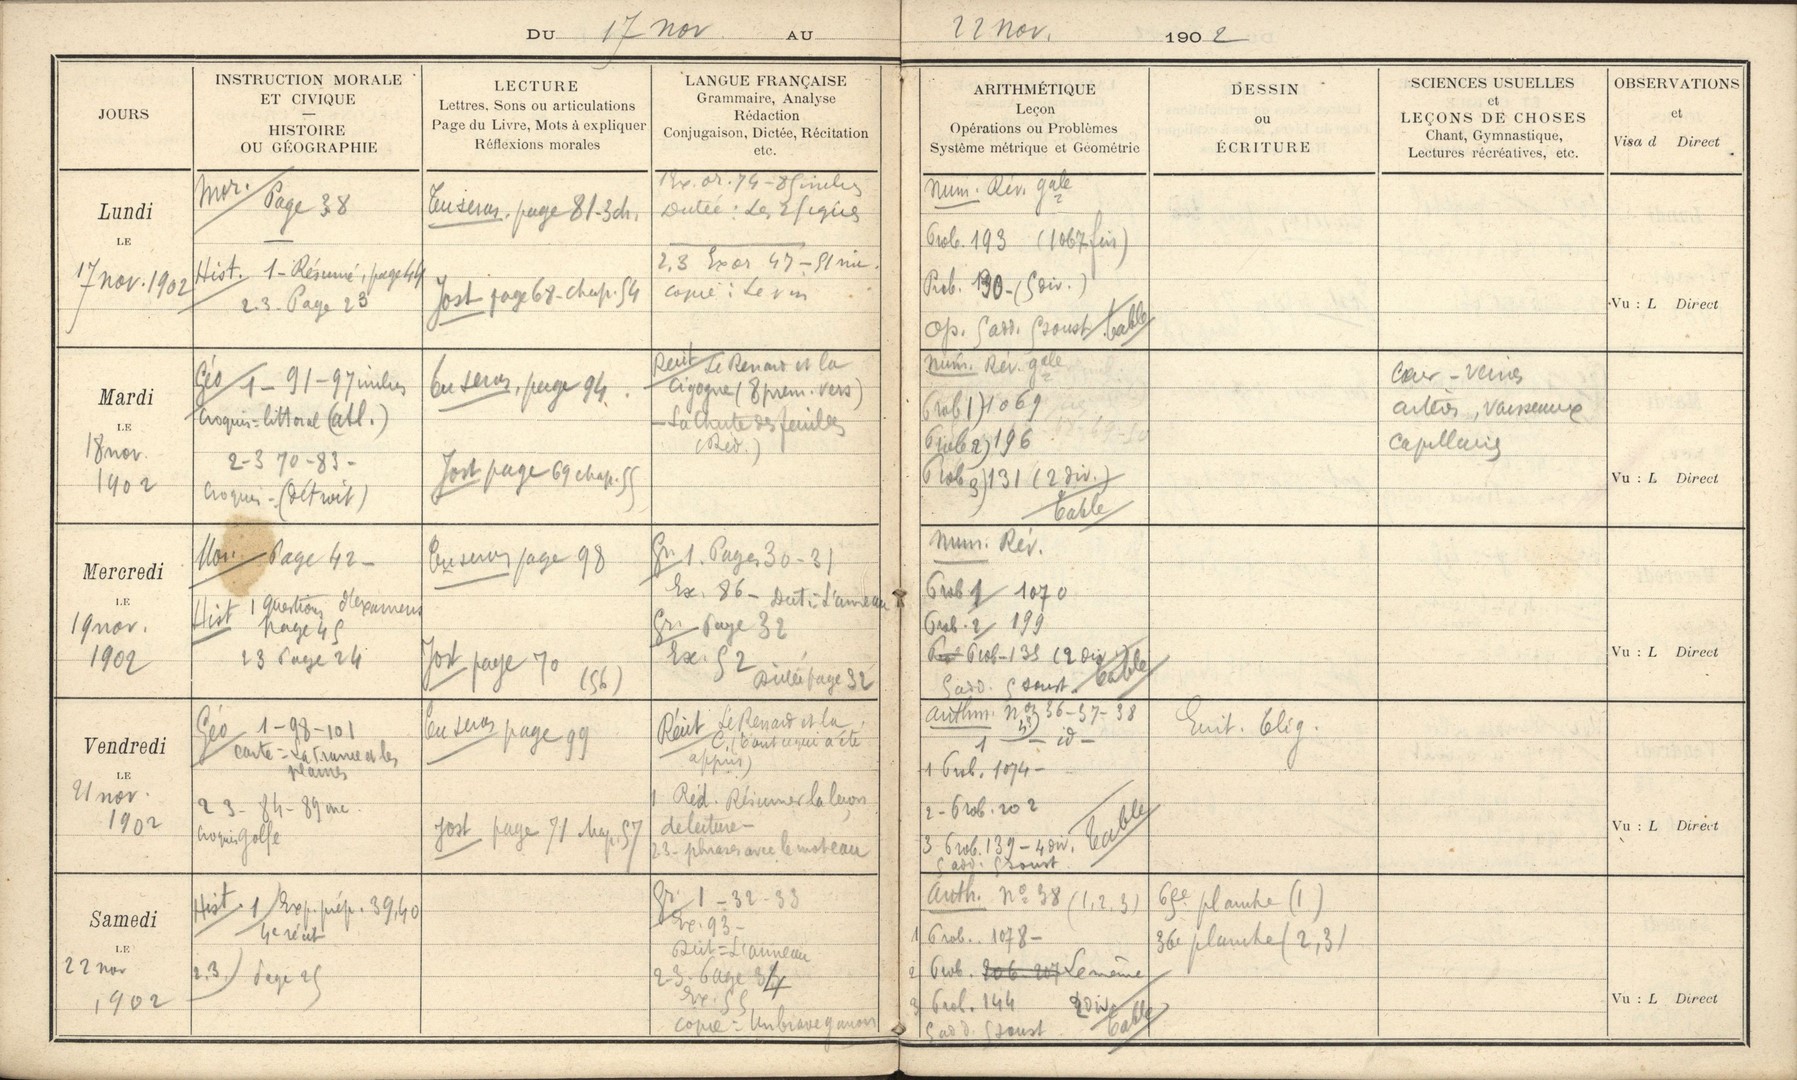 DU 17 nov AU 22 nov. 1902
JOURS
INSTRUCTION MORALE
ET CIVIQUE
HISTOIRE
OU GÉOGRAPHIE
LECTURE
Lettres, Sons ou articulations
Page du Livre, Mots à expliquer
Réflexions morales
LANGUE FRANÇAISE
Grammaire, Analyse
Rédaction
Conjugaison, Dictée, Récitation
etc.
ARITHMÉTIQUE
Leçon
Opérations ou Problèmes
Système métrique et Géométrie
DESSIN
OU
ÉCRITURE
SCIENCES USUELLES
et
LEÇONS DE CHOSES
Chant, Gymnastique,
Lectures récréatives, etc.
OBSERVATIONS
et
Visa d Direct
Lundi
LE
17 nov. 1902
Mor. Page 38
Hist. 1 - Résumé, page 44
2.3. Page 23
Tu seras, page 81-3ch.
Jost page 68 - chap. 54
Ex. or. 74 - 85 inclus
Dictée : Les
2,3 Ex or 47 - 51 inc.
copie : Le vin
Num. Rév. gale
Prob. 193 (1067 fin)
Prob. 130 - (5 div.)
Op. 5 add. 5 soust. Table
Vu : L Direct
Mardi
LE
18 nov.
1902
Géo 1 - 91 - 97 inclus
Croquis = littoral (atl.)
2-3 70-83 -
Croquis - (détroit)
Tu seras, page 94.
Jost page 69 chap. 55
Récit Le Renard et la
Cigogne (8 prem. vers)
- La chute des feuilles
(Réd.)
Num. Rév. gale
Prob 1) 1069
Prob 2) 196
Prob 3) 131 (2 div.)
Table
Cœur - veines
artères, vaisseaux
capillaires
Vu : L Direct
Mercredi
LE
19 nov.
1902
Mor. Page 42 -
Hist 1 Questions d'examens
page 45
23 Page 24
Tu seras page 98
Jost page 70
(56)
Gr. 1. Pages 30-31
Ex. 86 - Dict : L'anneau
Gr. Page 32
Ex. 52
Dictée page 32
Num. Rév.
Prob 1 1070
Prob. 2 199
Prob - 135 (2 div.) Table
5 add. 5 soust.
Vu : L Direct
Vendredi
LE
21 nov.
1902
Géo 1 - 98 - 101
carte = La France et les
plaines
2 3 - 84 - 89 inc.
Croquis golfe
Tu seras page 99
Jost page 71 chap. 57
Récit Le Renard et la
C. (tout ce qui a été
appris)
1 Réd. Résumer la leçon
de lecture -
2 3 - phrases avec le mot eau
Arithm. nos 36-37-38
1 - id -
1 Prob. 1074 -
2 - Prob. 202
3 Prob. 139 - 4 div. Table
5 add. 5 soust.
Ecrit. Elég.
Vu : L Direct
Samedi
LE
22 nov
1902
Hist. 1 Exp. prép. 39,40
4e récit
2.3) Page 25
Gr. 1 - 32 - 33
Ex. 93 -
Dict = L'anneau
2-3. Page 34
Ex. 55
copie = Un brave garçon
Arith. No 38 (1,2,3)
1 Prob. 1078 -
2 Prob. 206 - 207 Le même
3 Prob. 144 2 div. Table
5 add. 5 soust
planche (1)
36e planche (2,3)
Vu : L Direct